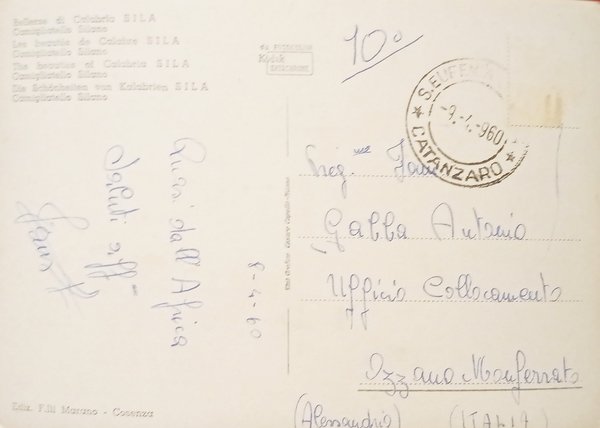 Bellezze di Calabria SILA
Camigliatello Silano
Les beautés de Calabre SILA
Camigliatello Silano
The beauties of Calabria SILA
Camigliatello Silano
Die Schönheiten von Kalabrien SILA
Camigliatello Silano
Kodak
EKTACHROME
10°
S. EUFEMIA
-9.-4.-960
* CATANZARO *
Gabba Antonio
Ufficio Collocamento
Ozzano Monferrato
(Alessandria) (ITALIA)
8-4-60
Quasi dall'Africa
Saluti aff
Ediz. F.lli Marano - Cosenza